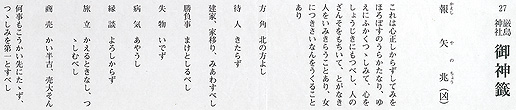 27 厳島神社 御神籤
報矢兆 凶
かえ や の ちょう
これは心正しからずしてみを
ほろぼすのうらかたなり、ゆ
えにふかくつゝしみて、心を
しょうじきにもつべし、人の
ざんそをもちいて、とがなき
人をいみきらうことあり、女
につきさいなんをうくること
あり
方角 北の方よし
待人 きたらず
失物 いでず
病気 あやうし
勝負事 まけとしるべし
建家、家移り、みあわすべし
縁談 よろしからず
旅立 かえるときなし、つゝしむべし
商売 かい半吉、売大そん
何事もこうかい先にたゝず、
つゝしみを第一とすべし